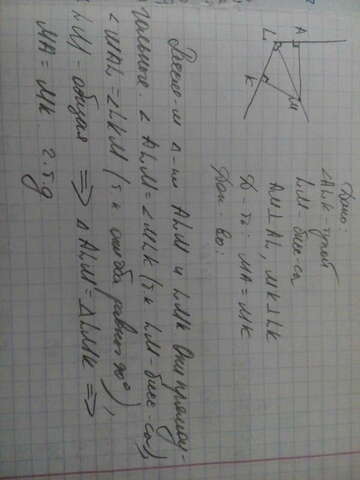 A
L
M
K
Дано:
∠ALK - тупой
LM - бисс-са
AM⊥AL, MK⊥LK
Д-ть: MA = MK
Док-во:
Рассм-м Δ-ки ALM и LMK. Они прямоу-
гольные. ∠ALM = ∠MLK (т.к LM - бисс-са),
∠MAL = ∠LKM (т.к они оба равны 90°),
LM - общая ⇒ ΔALM = ΔLMK ⇒
MA = MK ч.т.д